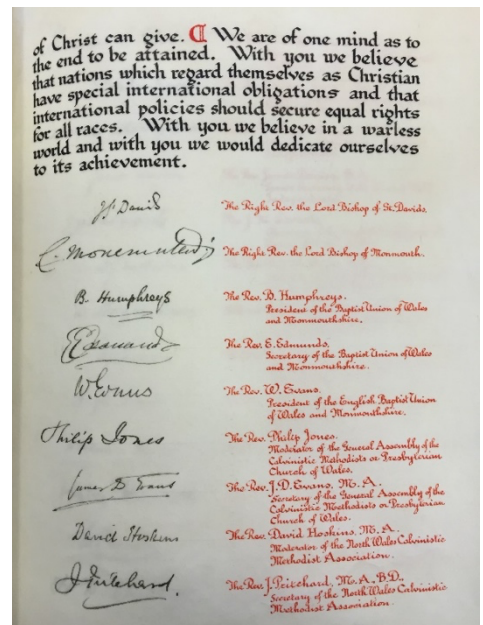 of Christ can give. ¶ We are of one mind as to
the end to be attained. With you we believe
that nations which regard themselves as Christian
have special international obligations and that
international policies should secure equal rights
for all races. With you we believe in a warless
world and with you we would dedicate ourselves
to its achievement.
J. St Davids The Right Rev. the Lord Bishop of St. Davids.
C. Monmouth The Right Rev. the Lord Bishop of Monmouth.
B. Humphreys The Rev. B. Humphreys.
President of the Baptist Union of Wales
and Monmouthshire.
E Edmunds The Rev. E. Edmunds,
Secretary of the Baptist Union of Wales
and Monmouthshire.
W. Evans The Rev. W. Evans.
President of the English Baptist Union
of Wales and Monmouthshire.
Philip Jones The Rev. Philip Jones.
Moderator of the General Assembly of the
Calvinistic Methodists or Presbyterian
Church of Wales.
James D Evans The Rev. J. D. Evans, M. A.
Secretary of the General Assembly of the
Calvinistic Methodists or Presbyterian
Church of Wales.
David Hoskins The Rev. David Hoskins, M. A.
Moderator of the North Wales Calvinistic
Methodist Association.
J Pritchard. The Rev. J. Pritchard, M. A., B.D.,
Secretary of the North Wales Calvinistic
Methodist Association.